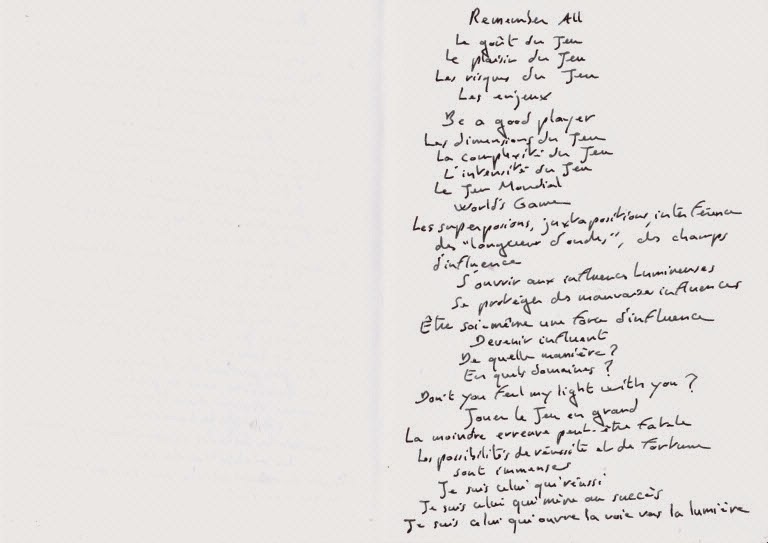 Remember All
Le goût du Jeu
Le plaisir du Jeu
Les risques du Jeu
Les enjeux
Be a good player
Les dimensions du Jeu
La complexité du Jeu
L'intensité du Jeu
Le Jeu Mondial
World's Game
Les superposions, juxtapositions, interférence
des "longueur d'ondes", des champs
d'influence
S'ouvrir aux influences lumineuses
Se protéger des mauvaises influences
Être soi-même une force d'influence
Devenir influent
De quelle manière ?
En quels domaines ?
Don't you feel my light with you ?
Jouer le Jeu en grand
La moindre erreure peut-être fatale
Les possibilités de réussite et de fortune
sont immenses
Je suis celui qui réussi
Je suis celui qui mène au succès
Je suis celui qui ouvre la voie vers la lumière